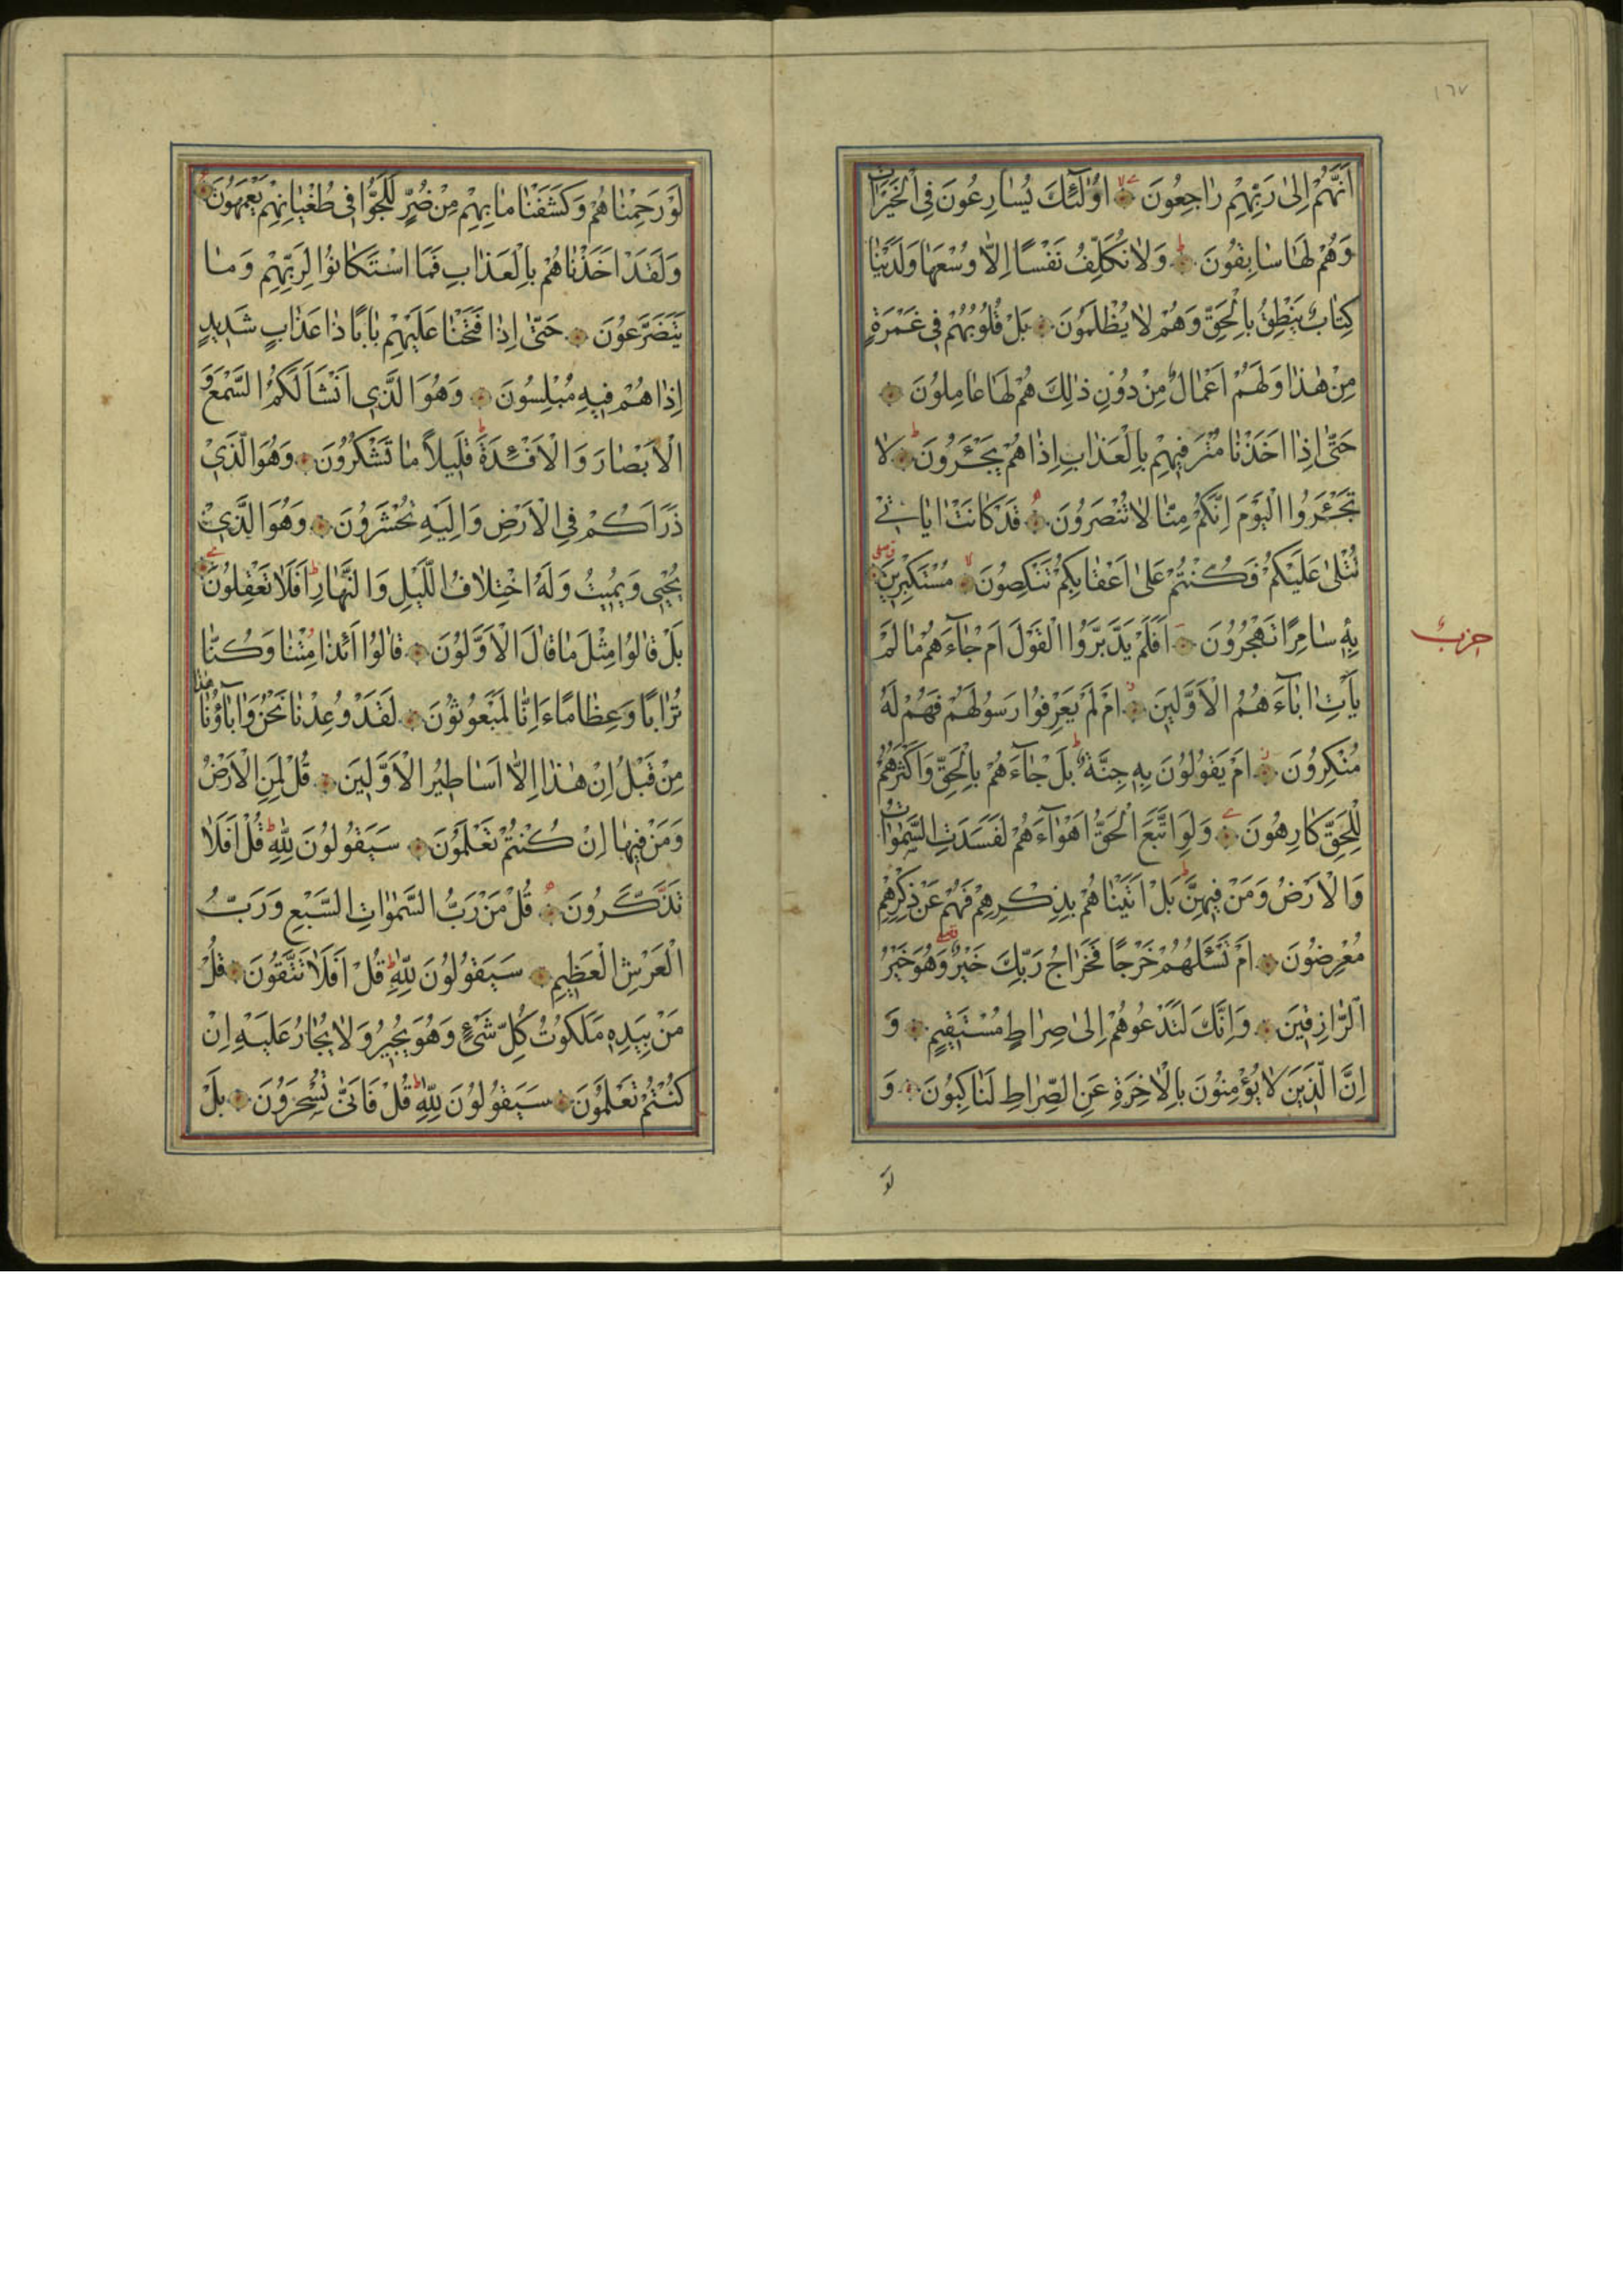 ١٦٧
اَنَّهُمْ اِلٰى رَبِّهِمْ رٰاجِعُونَ اُولٰٓئِكَ يُسٰارِعُونَ فِى الْخَيْرٰاتِ
وَهُمْ لَهٰا سٰابِقُونَ ط وَلاٰ نُكَلِّفُ نَفْسًا اِلّاٰ وُسْعَهٰا وَلَدَيْنٰا
كِتٰابٌ يَنْطِقُ بِالْحَقِّ وَهُمْ لاٰ يُظْلَمُونَ بَلْ قُلُوبُهُمْ فِى غَمْرَةٍ
مِنْ هٰذٰا وَلَهُمْ اَعْمٰالٌ مِنْ دُونِ ذٰلِكَ هُمْ لَهٰا عٰامِلُونَ
حَتّٰى اِذٰا اَخَذْنٰا مُتْرَفِيهِمْ بِالْعَذٰابِ اِذٰا هُمْ يَجْئَرُونَ ط لاٰ
تَجْئَرُوا الْيَوْمَ اِنَّكُمْ مِنّٰا لاٰ تُنْصَرُونَ قَدْ كٰانَتْ اٰيٰاتِى
تُتْلٰى عَلَيْكُمْ فَكُنْتُمْ عَلٰى اَعْقٰابِكُمْ تَنْكِصُونَ لا مُسْتَكْبِرِينَ
بِهِ سٰامِرًا تَهْجُرُونَ اَفَلَمْ يَدَّبَّرُوا الْقَوْلَ اَمْ جٰآءَهُمْ مٰا لَمْ
حزب
يَأْتِ اٰبٰآءَهُمُ الْاَوَّلِينَ اَمْ لَمْ يَعْرِفُوا رَسُولَهُمْ فَهُمْ لَهُ
مُنْكِرُونَ اَمْ يَقُولُونَ بِهِ جِنَّةٌ ط بَلْ جٰآءَهُمْ بِالْحَقِّ وَاَكْثَرُهُمْ
لِلْحَقِّ كٰارِهُونَ وَلَوِ اتَّبَعَ الْحَقُّ اَهْوٰآءَهُمْ لَفَسَدَتِ السَّمٰوٰاتُ
وَالْاَرْضُ وَمَنْ فِيهِنَّ ط بَلْ اَتَيْنٰاهُمْ بِذِكْرِهِمْ فَهُمْ عَنْ ذِكْرِهِمْ
مُعْرِضُونَ اَمْ تَسْئَلُهُمْ خَرْجًا فَخَرٰاجُ رَبِّكَ خَيْرٌ وَهُوَ خَيْرُ
الرّٰازِقِينَ وَاِنَّكَ لَتَدْعُوهُمْ اِلٰى صِرٰاطٍ مُسْتَقِيمٍ وَ
اِنَّ الَّذِينَ لاٰ يُؤْمِنُونَ بِالْاٰخِرَةِ عَنِ الصِّرٰاطِ لَنٰاكِبُونَ وَ
لَوْ
لَوْ رَحِمْنٰاهُمْ وَكَشَفْنٰا مٰا بِهِمْ مِنْ ضُرٍّ لَلَجُّوا فِى طُغْيٰانِهِمْ يَعْمَهُونَ
وَلَقَدْ اَخَذْنٰاهُمْ بِالْعَذٰابِ فَمَا اسْتَكٰانُوا لِرَبِّهِمْ وَمٰا
يَتَضَرَّعُونَ حَتّٰى اِذٰا فَتَحْنٰا عَلَيْهِمْ بٰابًا ذٰا عَذٰابٍ شَدِيدٍ
اِذٰا هُمْ فِيهِ مُبْلِسُونَ وَهُوَ الَّذِى اَنْشَاَ لَكُمُ السَّمْعَ وَ
الْاَبْصٰارَ وَالْاَفْئِدَةَ ط قَلِيلاً مٰا تَشْكُرُونَ وَهُوَ الَّذِى
ذَرَاَكُمْ فِى الْاَرْضِ وَاِلَيْهِ تُحْشَرُونَ وَهُوَ الَّذِى
يُحْيِى وَيُمِيتُ وَلَهُ اخْتِلاٰفُ الَّيْلِ وَالنَّهٰارِ ط اَفَلاٰ تَعْقِلُونَ
بَلْ قٰالُوا مِثْلَ مٰا قٰالَ الْاَوَّلُونَ قٰالُوا اَئِذٰا مِتْنٰا وَكُنّٰا
تُرٰابًا وَعِظٰامًا ءَاِنّٰا لَمَبْعُوثُونَ لَقَدْ وُعِدْنٰا نَحْنُ وَاٰبٰاؤُنٰا هٰذٰا
مِنْ قَبْلُ اِنْ هٰذٰا اِلّاٰ اَسٰاطِيرُ الْاَوَّلِينَ قُلْ لِمَنِ الْاَرْضُ
وَمَنْ فِيهٰا اِنْ كُنْتُمْ تَعْلَمُونَ سَيَقُولُونَ لِلّٰهِ ط قُلْ اَفَلاٰ
تَذَكَّرُونَ قُلْ مَنْ رَبُّ السَّمٰوٰاتِ السَّبْعِ وَرَبُّ
الْعَرْشِ الْعَظِيمِ سَيَقُولُونَ لِلّٰهِ ط قُلْ اَفَلاٰ تَتَّقُونَ قُلْ
مَنْ بِيَدِهِ مَلَكُوتُ كُلِّ شَىْءٍ وَهُوَ يُجِيرُ وَلاٰ يُجٰارُ عَلَيْهِ اِنْ
كُنْتُمْ تَعْلَمُونَ سَيَقُولُونَ لِلّٰهِ ط قُلْ فَاَنّٰى تُسْحَرُونَ بَلْ